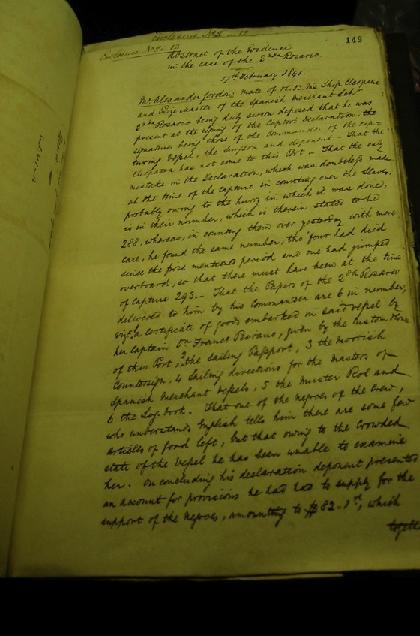 Enclosure No 8
Enclosure No 9
149
Abstract of the Evidence
in the case of the 2nda Rosario
17 February 1841
Mr Alexander Gordon, mate of H.B.M's Ship Cleopatra
and Prize master of the Spanish Merchant
2nda Rosario being duly sworn deposed that he was
present at the signing of the Captor's Declaration, the
signature being those of the Commander of the cap-
turing Vessel, the Surgeon and deponent. That the
Cleopatra has not come to this Port. That the only
mistake in the Declaration, which was doubtless made
at the time of the capture in counting over the slaves,
probably owing to the hurry in which it was done,
is in their number, which is therein stated to be
288, whereas, in counting them over yesterday with more
care, he found the same number, tho' four had died
since the first mentioned period and one had jumped
overboard, so that there must have been at the time
of capture 293. That the Papers of the 2nda Rosario
delivered to him by his Commander are 6 in number,
vizt a certificate of goods embarked in said vessel by
her Captain Dn Franco given by the Custom House
of this Port, 2 the sailing Passport, 3 the
Countersign, 4 sailing directions for the Masters of
Spanish Merchant Vessels, 5 the Muster Roll and
6 the Log book. That one of the negroes of the
who understands English tells him there are some few
articles of food left, but that owing to the crowded
state of the Vessel he has been unable to examine
her. On concluding his declaration deponent presented
an account for provisions he had had to supply for the
support of the Negroes, amounting to $82. which